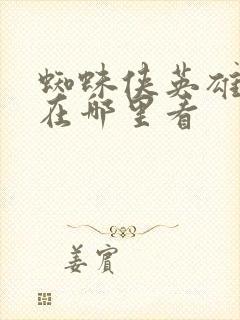 蜘蛛侠英雄
在哪里看
姜宾